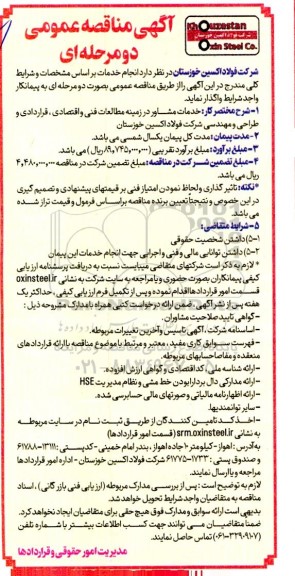 Khouzestan
شرکت فولاد اکسین خوزستان
Oxin Steel Co.
آگهی مناقصه عمومی
دو مرحله ای
شرکت فولاد اکسین خوزستان در نظر دارد انجام خدمات بر اساس مشخصات و شرایط
کلی مندرج در این آگهی را از طریق مناقصه عمومی بصورت دو مرحله ای به پیمانکار
واجد شرایط واگذار نماید.
۱- شرح مختصر کار: خدمات مشاور در زمینه مطالعات فنی و اقتصادی، قراردادی و
طراحی و مهندسی شرکت فولاد اکسین خوزستان
۲- مدت پیمان: مدت کل پیمان یکسال شمسی می باشد.
۳- مبلغ برآورد: مبلغ برآورد تقریبی (۸۹,۷۴۵,۰۰۰,۰۰۰) ریال می باشد.
۴- مبلغ تضمین شرکت در مناقصه: مبلغ تضمین شرکت در مناقصه ۴,۴۸۰,۰۰۰,۰۰۰
ریال می باشد.
*نکته: تاثیر گذاری و لحاظ نمودن امتیاز فنی بر قیمتهای پیشنهادی و تصمیم گیری
در این خصوص و نتیجتا تعیین برنده مناقصه براساس فرمول و قیمت تراز شده
می باشد.
۵- شرایط متقاضی:
۵-۱) داشتن شخصیت حقوقی
۵-۲) داشتن توانایی مالی و فنی و اجرایی جهت انجام خدمات این پیمان
* لازم به ذکر است شرکتهای متقاضی میبایست نسبت به دریافت پرسشنامه ارزیابی
کیفی پیمانکاران بصورت حضوری و یا مراجعه به سایت شرکت به نشانی oxinsteel.ir
قسمت امور قراردادها اقدام نموده و پس از تکمیل فرم ارزیابی کیفی، حداکثر یک
هفته پس از نشر آگهی، ضمن ارائه درخواست کتبی همراه با مدارک مشروحه ذیل:
-گواهی تایید صلاحیت مشاوران.
-اساسنامه شرکت، آگهی تاسیس و آخرین تغییرات مربوطه.
- فهرست سوابق کاری مفید، معتبر و مرتبط با موضوع مناقصه با ارائه قراردادهای
منعقده و مفاصاحسابهای مربوطه.
-ارائه شناسه ملی، کد اقتصادی و گواهی ارزش افزوده.
-ارائه مدارکی دال بر دارا بودن خط مشی و نظام مدیریت HSE
-ارائه اظهارنامه مالیاتی و صورتهای مالی حسابرسی شده.
-سایر توانمندیها.
-اخذ کد تامین کنندگان از طریق ثبت نام در سایت مربوطه به
به نشانی srm.oxinsteel.ir (قسمت امور قراردادها)
به آدرس: اهواز- کیلومتر ۱۰ جاده اهواز، بندر امام خمینی - کدپستی: ۱۳۱۱۱-۶۱۷۸۸
و صندوق پستی: ۱۷۳۳-۶۱۷۷۵ شرکت فولاد اکسین خوزستان - اداره امور قراردادها
مراجعه و یا ارسال نمایند.
لازم به توضیح است: پس از بررسی مدارک مربوطه (ارزیابی فنی بازرگانی)، اسناد
مناقصه به متقاضیان واجد شرایط تحویل خواهد شد.
بدیهی است ارائه سوابق و مدارک فوق هیچ حقی برای متقاضیان ایجاد نخواهد کرد.
ضمنا متقاضیان می توانند جهت کسب اطلاعات بیشتر با شماره تلفن
(۰۶۱-۳۲۹۰۹۱۰۷) تماس حاصل نمایند.
مدیریت امور حقوقی و قراردادها